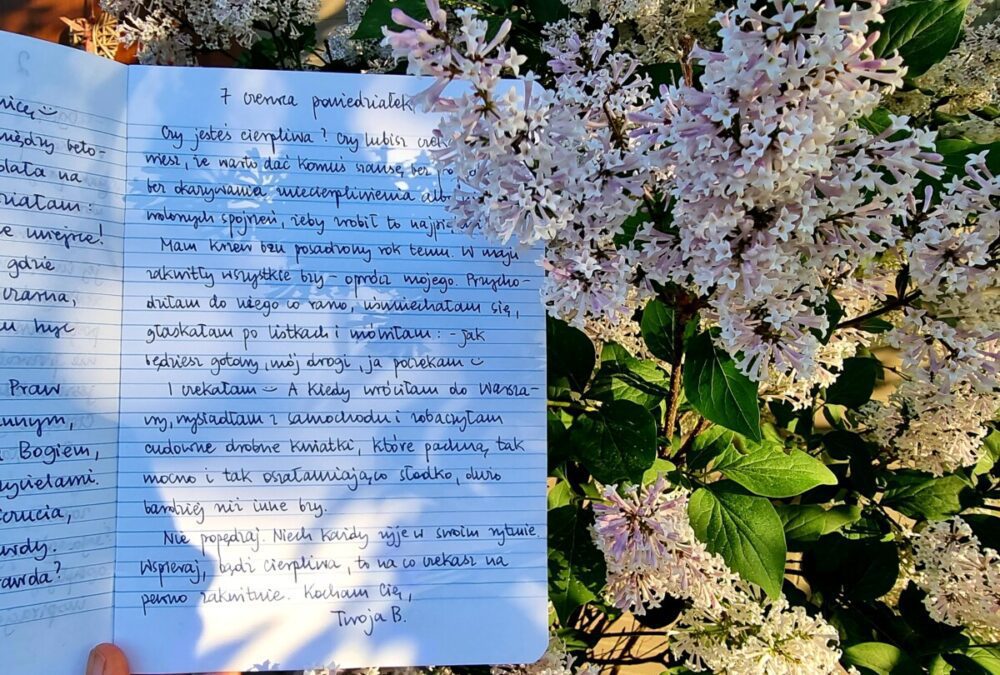 2
nicę
między beto-
olała na
miałam:
ce miejsce!
gdzie
zrama,
być
Praw
nnym,
Bogiem,
ycielami.
czucia,
awdy.
rawda?
7 czerwca poniedziałek
Czy jesteś cierpliwa? Czy lubisz czek
miesz, że warto dać komuś szansę, bez po
bez okazywania zniecierpliwienia albo
wolonych spojrzeń, żeby zrobił to najpię
Mam krzew bzu posadzony rok temu. W maju
zakwitły wszystkie bzy oprócz mojego. Przycho-
dziłam do niego co rano, uśmiechałam się,
głaskałam po listkach i mówiłam: - jak
będziesz gotowy, mój drogi, ja poczekam
I czekałam A kiedy wróciłam do Warsza-
wy, wysiadłam z samochodu i zobaczyłam
cudowne drobne kwiatki, które pachną tak
mocno i tak oszałamiająco słodko, dużo
bardziej niż inne bzy.
Nie popędzaj. Niech każdy żyje w swoim rytmie.
Wspieraj, bądź cierpliwa, to na co czekasz na
pewno zakwitnie. Kocham Cię,
Twoja B.